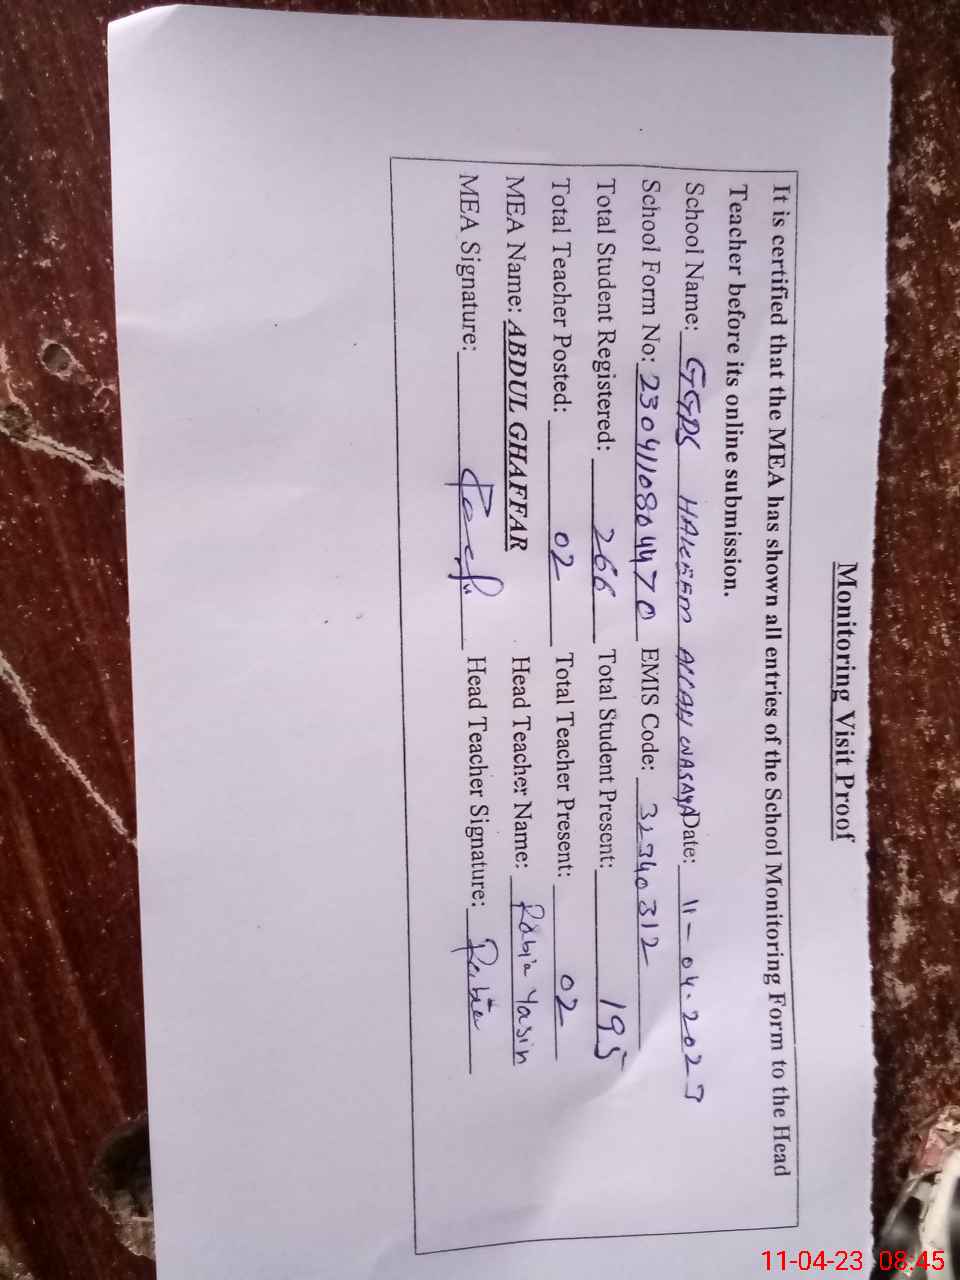 Monitoring Visit Proof
It is certified that the MEA has shown all entries of the School Monitoring Form to the Head
Teacher before its online submission.
School Name: GGPS HAKEEM ALLAH WASAYA Date: 11-04-2023
School Form No: 2304110804470 EMIS Code: 32340312
Total Student Registered: 266 Total Student Present: 195
Total Teacher Posted: 02 Total Teacher Present: 02
MEA Name: ABDUL GHAFFAR Head Teacher Name: Rabia Yasin
MEA Signature: Head Teacher Signature: Rabia
11-04-23 08:45